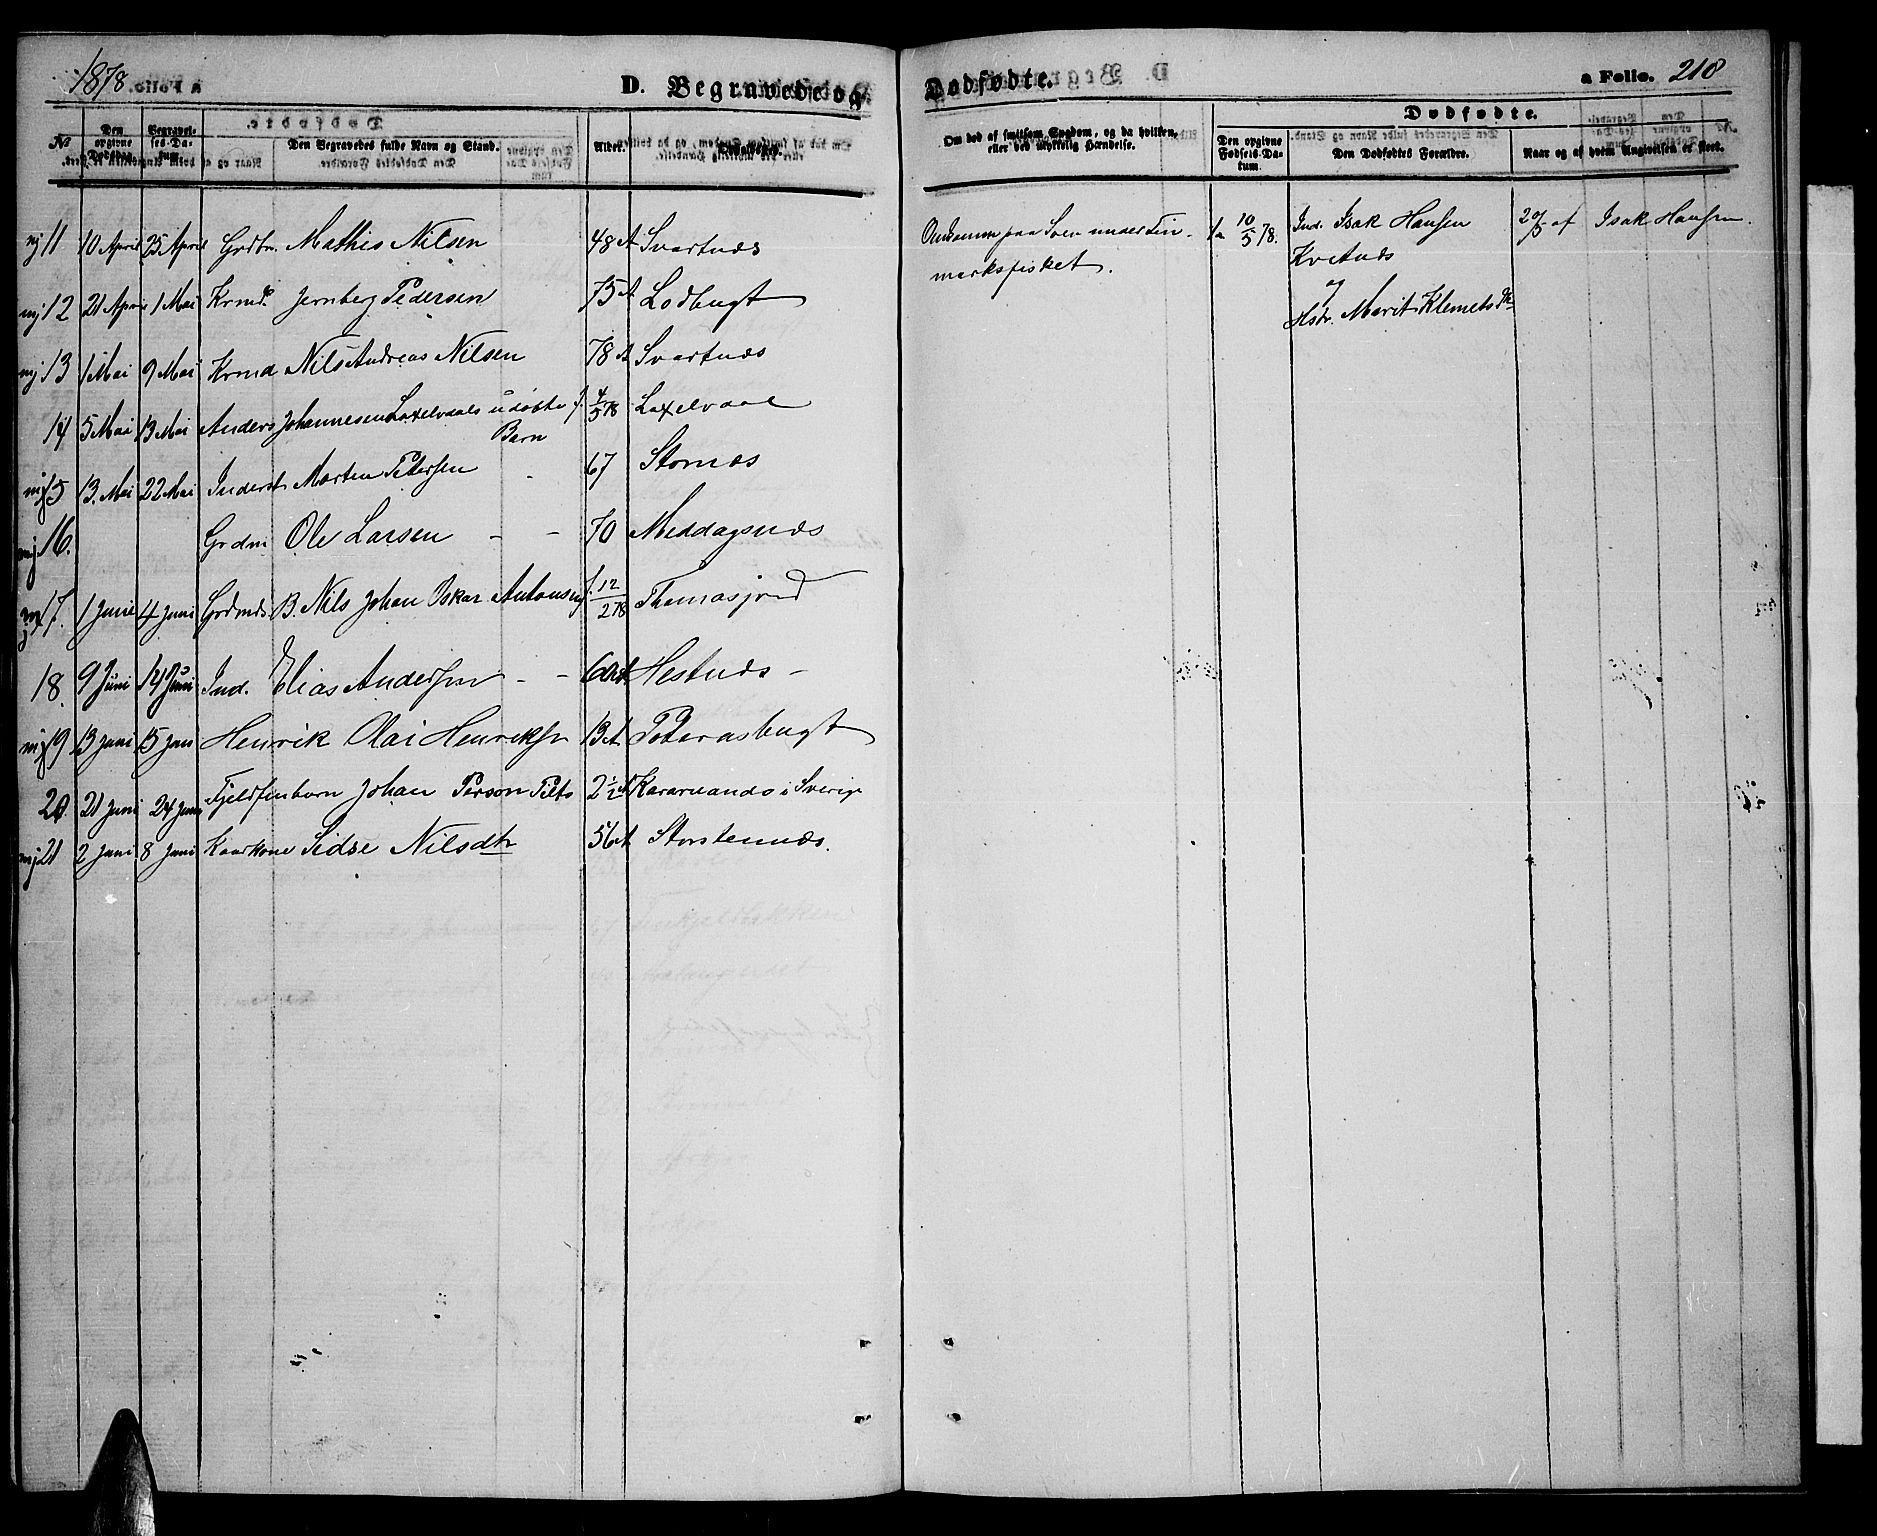 1878.
D. Begravede og
№
Den opgivne Dødsdag.
Begravelses-Datum.
Den Begravedes fulde Navn og Stand.
Alder.
mj 11 10 April 25 April Grdbr. Mathis Nilsen 48 A Svartnæs
mj 12 21 April 1 Mai Krmd. Jernberg Pedersen 75 A Lodbugt
mj 13 1 Mai 9 Mai Krmd Nils Andreas Nilsen 78 A Svartnæs
14 5 Mai 13 Mai Anders Johannesen Laxelvdals udøbte f. 4/5 78 Laxelvdal
Barn
mj 15 13. Mai 22 Mai Inderst Morten Petersen - 67 Stornæs
mj 16. Grdm Ole Larsen - - 70 Meddagsnæs
mj 17. 1 Juni 4 Juni Grdmds B. Nils Johan Oskar Antonsen f. 12/2 78 Thomasjord
18. 9 Juni 14 Juni Ind. Elias Andersen - - Hestnæs -
mj 19 13 Juni 15 Juni Henrik Olai Henriksen 13 A Petersbugt
20. 21 Juni 24 Juni Fjeldfinbarn Johan Person Pilto 2½ A Kararuando i Sverige
mj 21 2 Juni 8 Juni Kaarkone Sidse Nilsdtr 56 A Storstennæs.
Dødfødte.
a Folio. 218
Om død af smitsom Sygdom, og da hvilken, eller ved ulykkelig Hændelse.
Dødfødte.
Den opgivne Fødsels-Datum.
Den Dødfødtes Forældre.
Naar og af hvem Angivelsen er skeet.
Omkommen paa Søen under Fin-
markfisket.
1. 10/5 78. Ind. Isak Hansen
Kvitnæs
og
Hstr. Marit Klemetsdtr
20/5 af Isak Hansen.